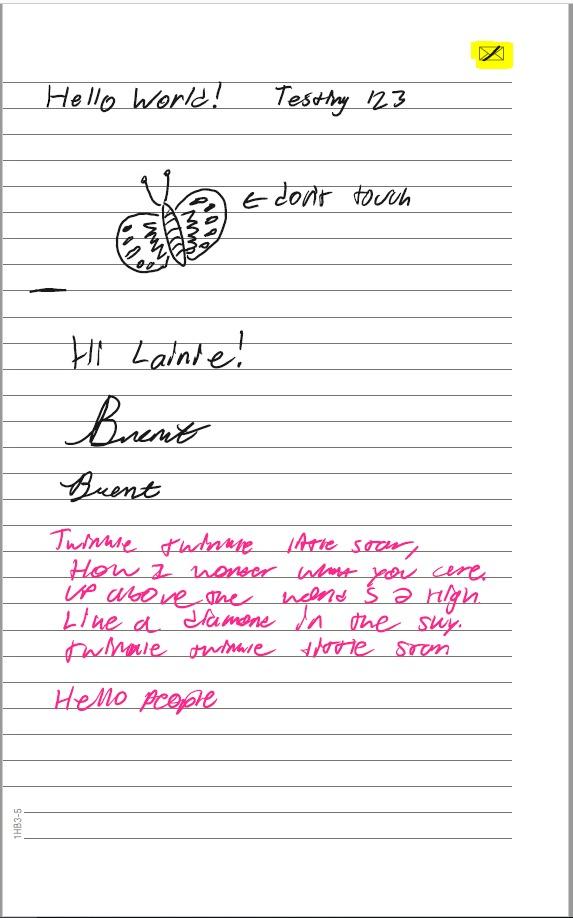 Hello World! Testing 123
← don't touch
Hi Lainie!
Brent
Brent
Twinkle twinkle little star,
How I wonder what you are.
Up above the world s o high
Like a diamond in the sky.
twinkle twinkle little star
Hello people
1HB3-5